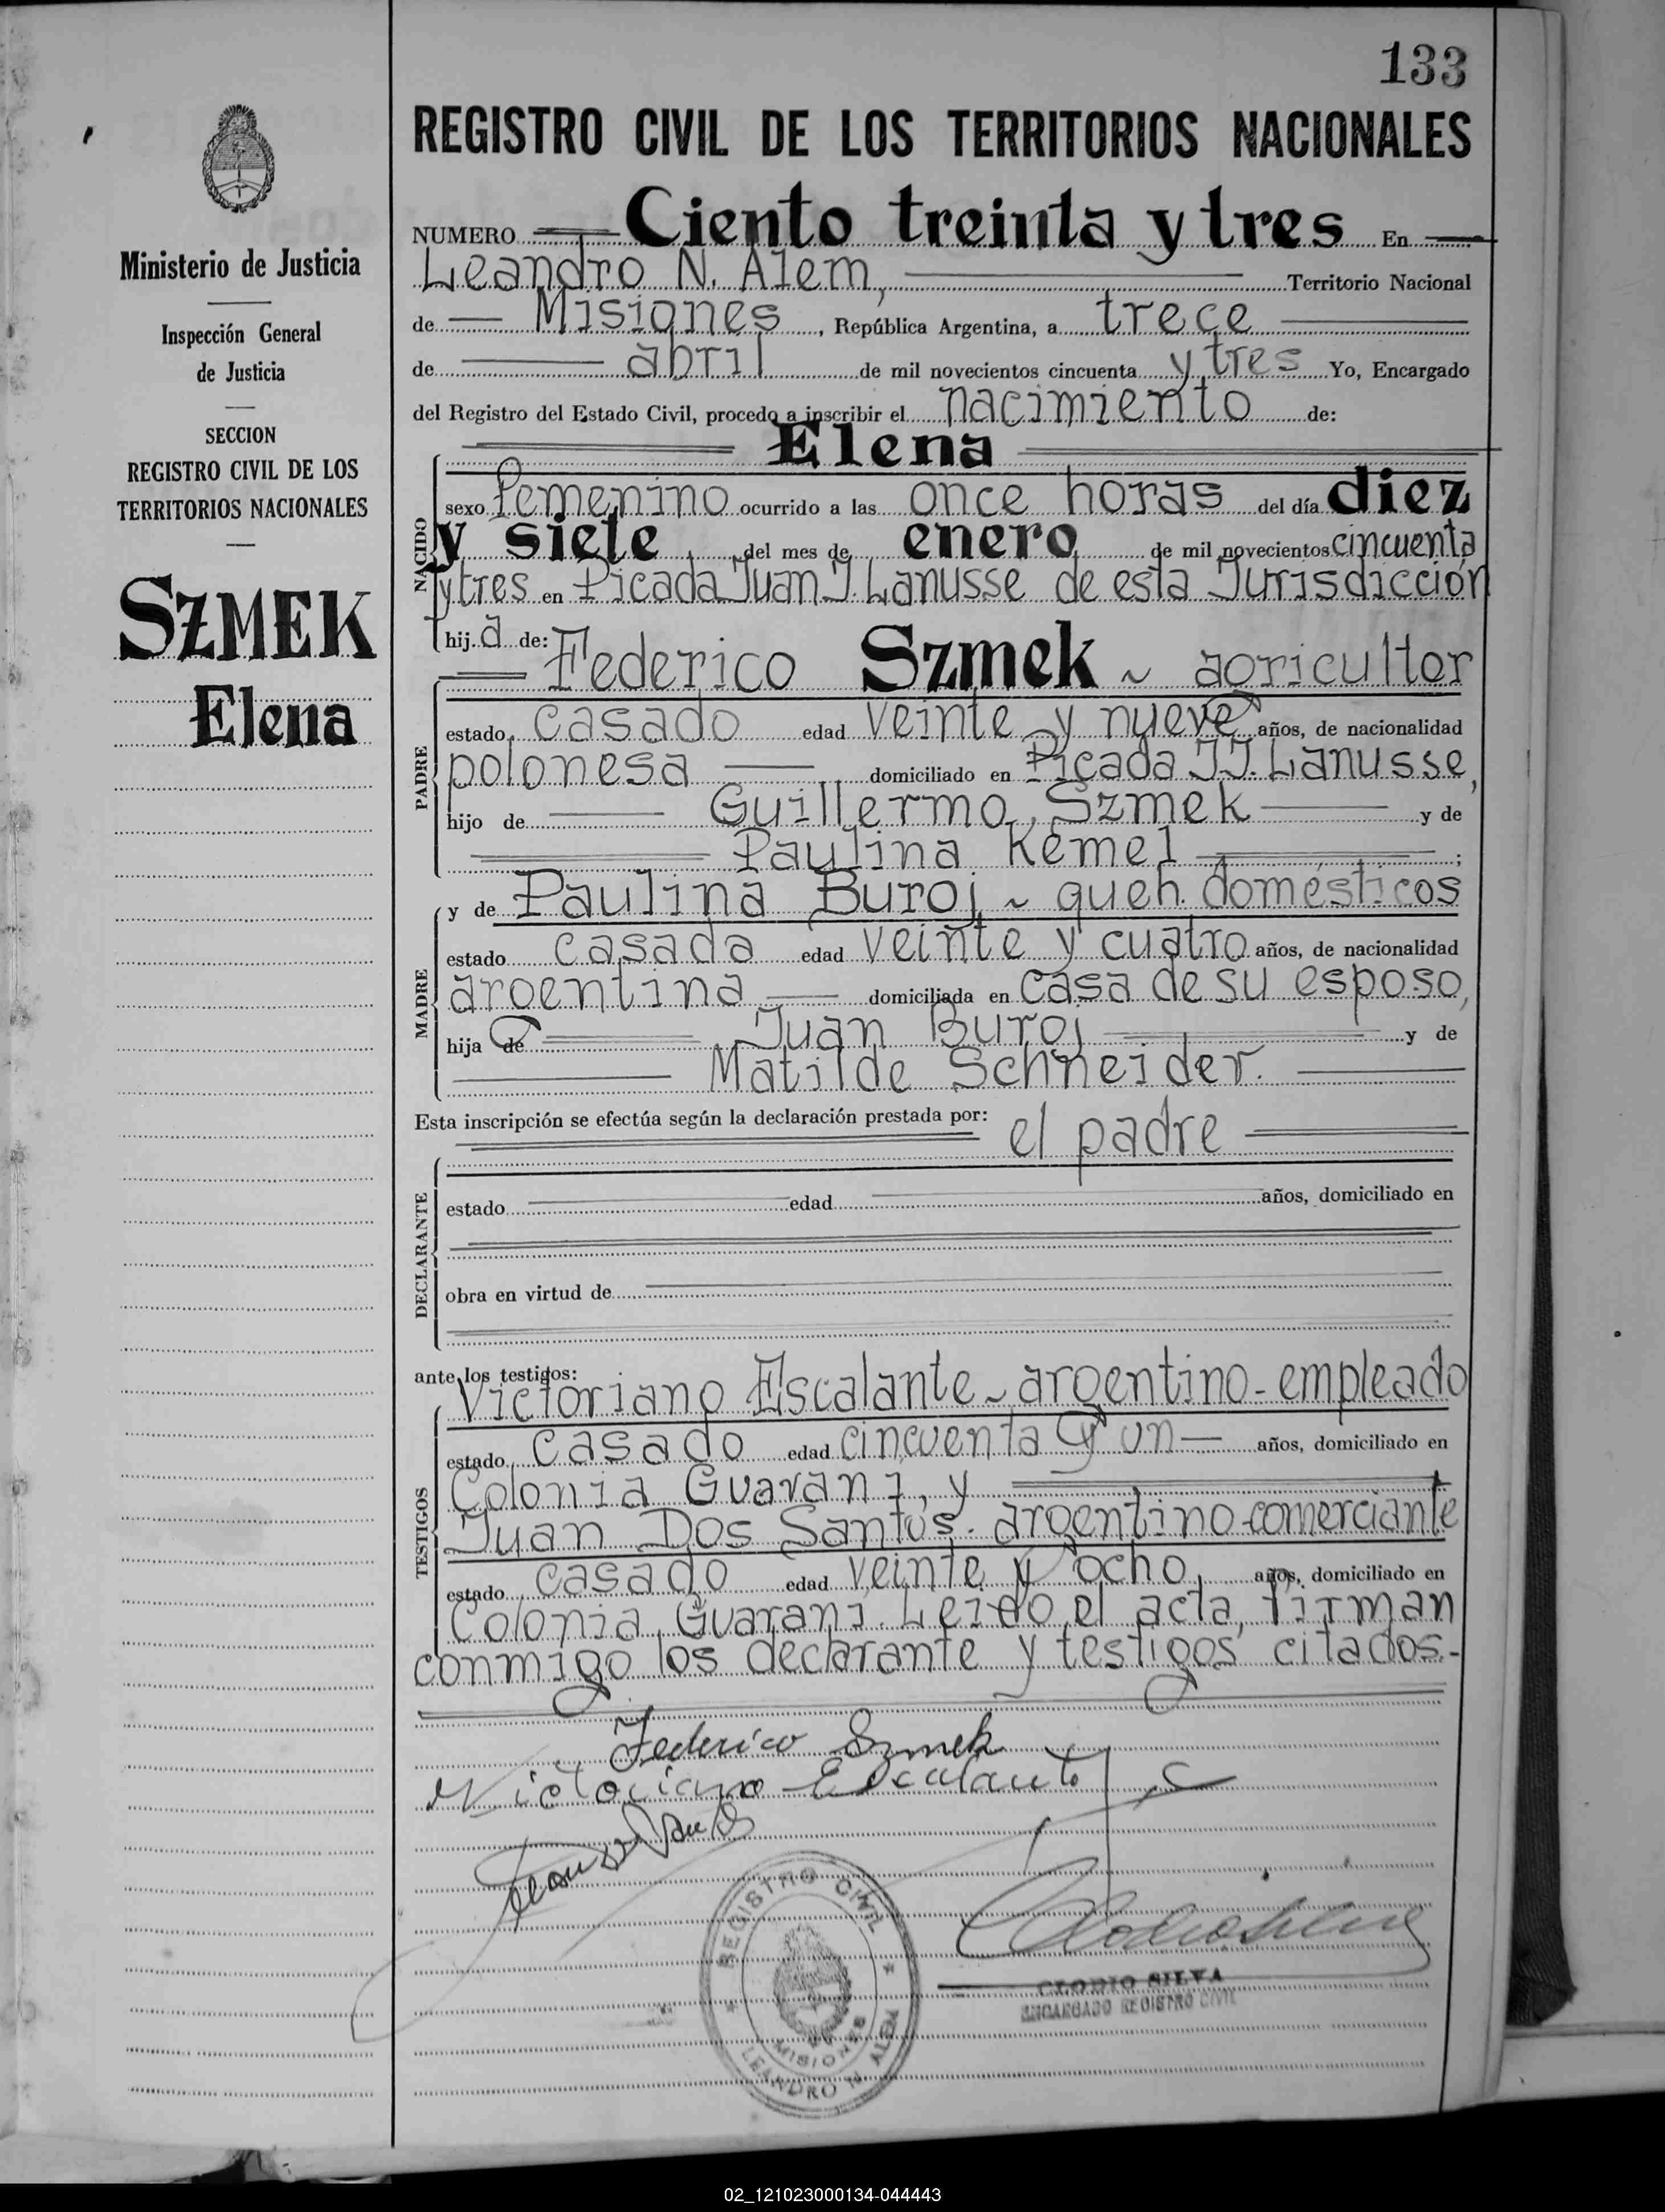 133
REGISTRO CIVIL DE LOS TERRITORIOS NACIONALES
NUMERO Ciento treinta y tres En
Leandro N. Alem, Territorio Nacional
de Misiones, República Argentina, a trece
de abril de mil novecientos cincuenta y tres Yo, Encargado
del Registro del Estado Civil, procedo a inscribir el nacimiento de:
Elena
sexo femenino ocurrido a las once horas del día diez
y siete del mes de enero de mil novecientos cincuenta
y tres en Picada Juan J. Lanusse de esta Jurisdicción
hij a de:
NACIDO
Federico Szmek ~ agricultor
estado casado edad veinte y nueve años, de nacionalidad
polonesa domiciliado en Picada J.J. Lanusse,
hijo de Guillermo Szmek y de
Paulina Kemel ;
PADRE
y de Paulina Buroj ~ queh. domésticos
estado casada edad veinte y cuatro años, de nacionalidad
argentina domiciliada en casa de su esposo,
hija de Juan Buroj y de
Matilde Schneider.
MADRE
Esta inscripción se efectúa según la declaración prestada por: el padre
estado edad años, domiciliado en
obra en virtud de
DECLARANTE
ante los testigos:
Victoriano Escalante ~ argentino - empleado
estado casado edad cincuenta y un años, domiciliado en
Colonia Guaraní, y
Juan Dos Santos - argentino - comerciante
estado casado edad veinte y ocho años, domiciliado en
Colonia Guaraní. Leido el acta, firman
TESTIGOS
conmigo los declarante y testigos citados.-
Federico Szmek
Victoriano Escalante
REGISTRO CIVIL
MISIONES
LEANDRO N. ALEM
CLODIO SILVA
ENCARGADO REGISTRO CIVIL
Ministerio de Justicia
Inspección General
de Justicia
SECCION
REGISTRO CIVIL DE LOS
TERRITORIOS NACIONALES
SZMEK
Elena
02_121023000134-044443